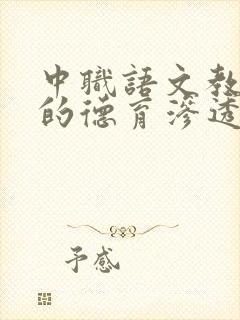 中職語文教
的德育滲透
予感